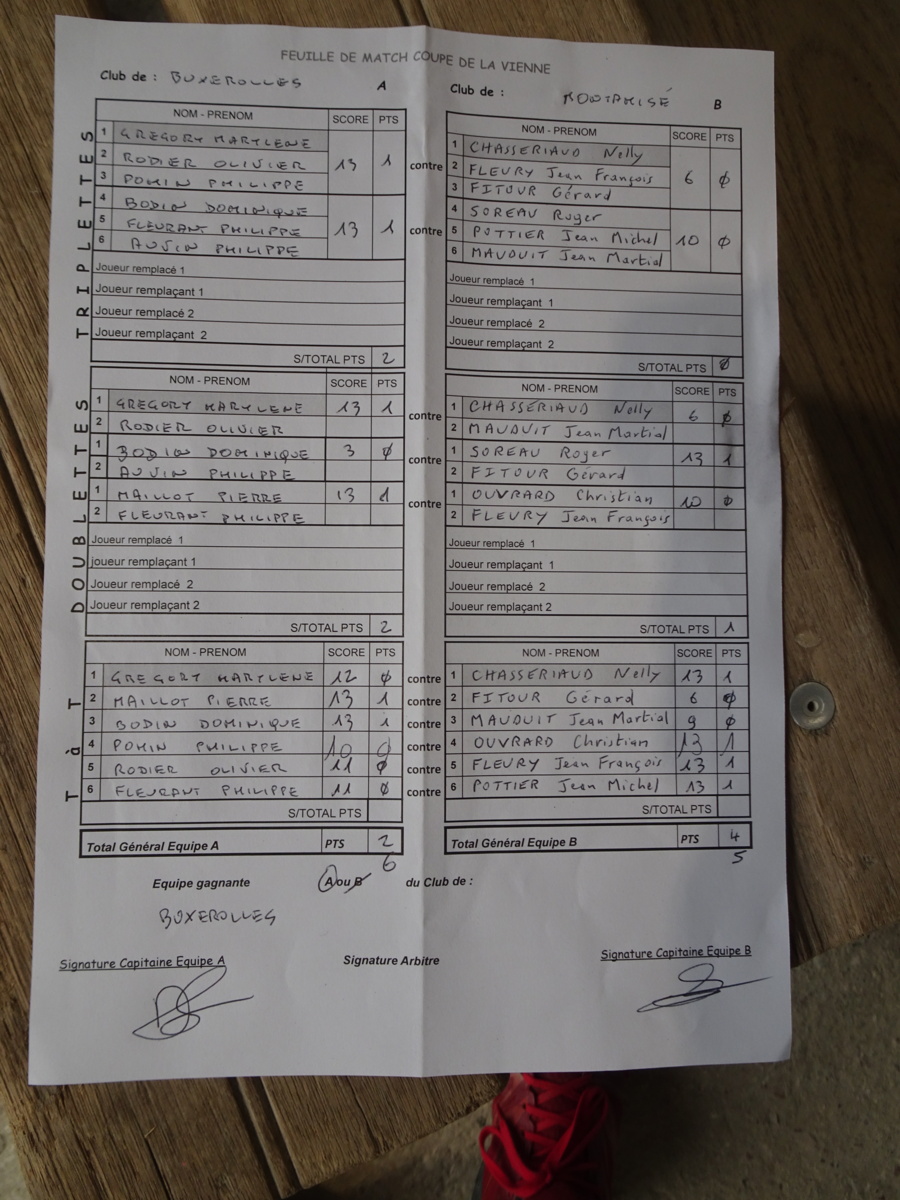 FEUILLE DE MATCH COUPE DE LA VIENNE
Club de : BUXEROLLES A
Club de : B
TRIPLETTES
NOM - PRENOM SCORE PTS
1 GREGORY MARYLENE
2 RODIER OLIVIER 13 1
3 POMIN PHILIPPE
4 BODIN DOMINIQUE
5 FLEURANT PHILIPPE 13 1
6 AUVIN PHILIPPE
Joueur remplacé 1
Joueur remplaçant 1
Joueur remplacé 2
Joueur remplaçant 2
S/TOTAL PTS 2
contre
contre
NOM - PRENOM SCORE PTS
1 CHASSERIAUD Nelly
2 FLEURY Jean François 6 Ø
3 FITOUR Gérard
4 SOREAU Roger
5 POTTIER Jean Michel 10 Ø
6 MAUDUIT Jean Martial
Joueur remplacé 1
Joueur remplaçant 1
Joueur remplacé 2
Joueur remplaçant 2
S/TOTAL PTS Ø
DOUBLETTES
NOM - PRENOM SCORE PTS
1 GREGORY MARYLENE 13 1
2 RODIER OLIVIER
1 BODIN DOMINIQUE 3 Ø
2 AUVIN PHILIPPE
1 MAILLOT PIERRE 13 1
2 FLEURANT PHILIPPE
Joueur remplacé 1
joueur remplaçant 1
Joueur remplacé 2
Joueur remplaçant 2
S/TOTAL PTS 2
contre
contre
contre
NOM - PRENOM SCORE PTS
1 CHASSÉRIAUD Nelly 6 Ø
2 MAUDUIT Jean Martial
1 SOREAU Roger 13 1
2 FITOUR Gérard
1 OUVRARD Christian 10 Ø
2 FLEURY Jean François
Joueur remplacé 1
Joueur remplaçant 1
Joueur remplacé 2
Joueur remplaçant 2
S/TOTAL PTS 1
T à T
NOM - PRENOM SCORE PTS
1 GREGORY MARYLENE 12 Ø
2 MAILLOT PIERRE 13 1
3 BODIN DOMINIQUE 13 1
4 POMIN PHILIPPE 10 Ø
5 RODIER OLIVIER 11 Ø
6 FLEURANT PHILIPPE 11 Ø
S/TOTAL PTS
contre
contre
contre
contre
contre
contre
NOM - PRENOM SCORE PTS
1 CHASSERIAUD Nelly 13 1
2 FITOUR Gérard 6 Ø
3 MAUDUIT Jean Martial 9 Ø
4 OUVRARD Christian 13 1
5 FLEURY Jean François 13 1
6 POTTIER Jean Michel 13 1
S/TOTAL PTS
Total Général Equipe A PTS 2
6
Total Général Equipe B PTS 4
5
Equipe gagnante A ou B du Club de :
BUXEROLLES
Signature Capitaine Equipe A
Signature Arbitre
Signature Capitaine Equipe B